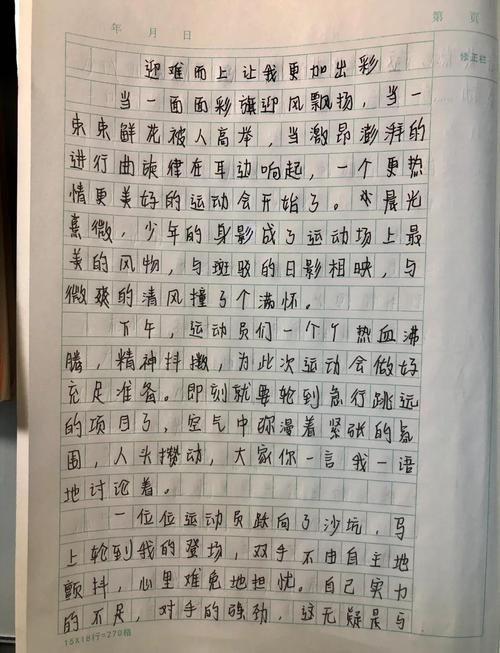 年 月 日
第 页
修正栏
迎难而上让我更加出彩
当一面面彩旗迎风飘扬，当一
束束鲜花被人高举，当激昂澎湃的
进行曲旋律在耳边响起，一个更热
情更美好的运动会开始了。晨光
熹微，少年的身影成了运动场上最
美的风物，与斑驳的日影相映，与
微爽的清风撞了个满怀。
下午，运动员们一个个热血沸
腾，精神抖擞，为此次运动会做好
充足准备。即刻就要轮到急行跳远
的项目了，空气中弥漫着紧张的氛
围，人头攒动，大家你一言我一语
地讨论着。
一位位运动员跃向了沙坑，马
上轮到我的登场，双手不由自主地
颤抖，心里难免地担忧。自己实力
的不足，对手的强劲，这无疑是与
15×18行=270格